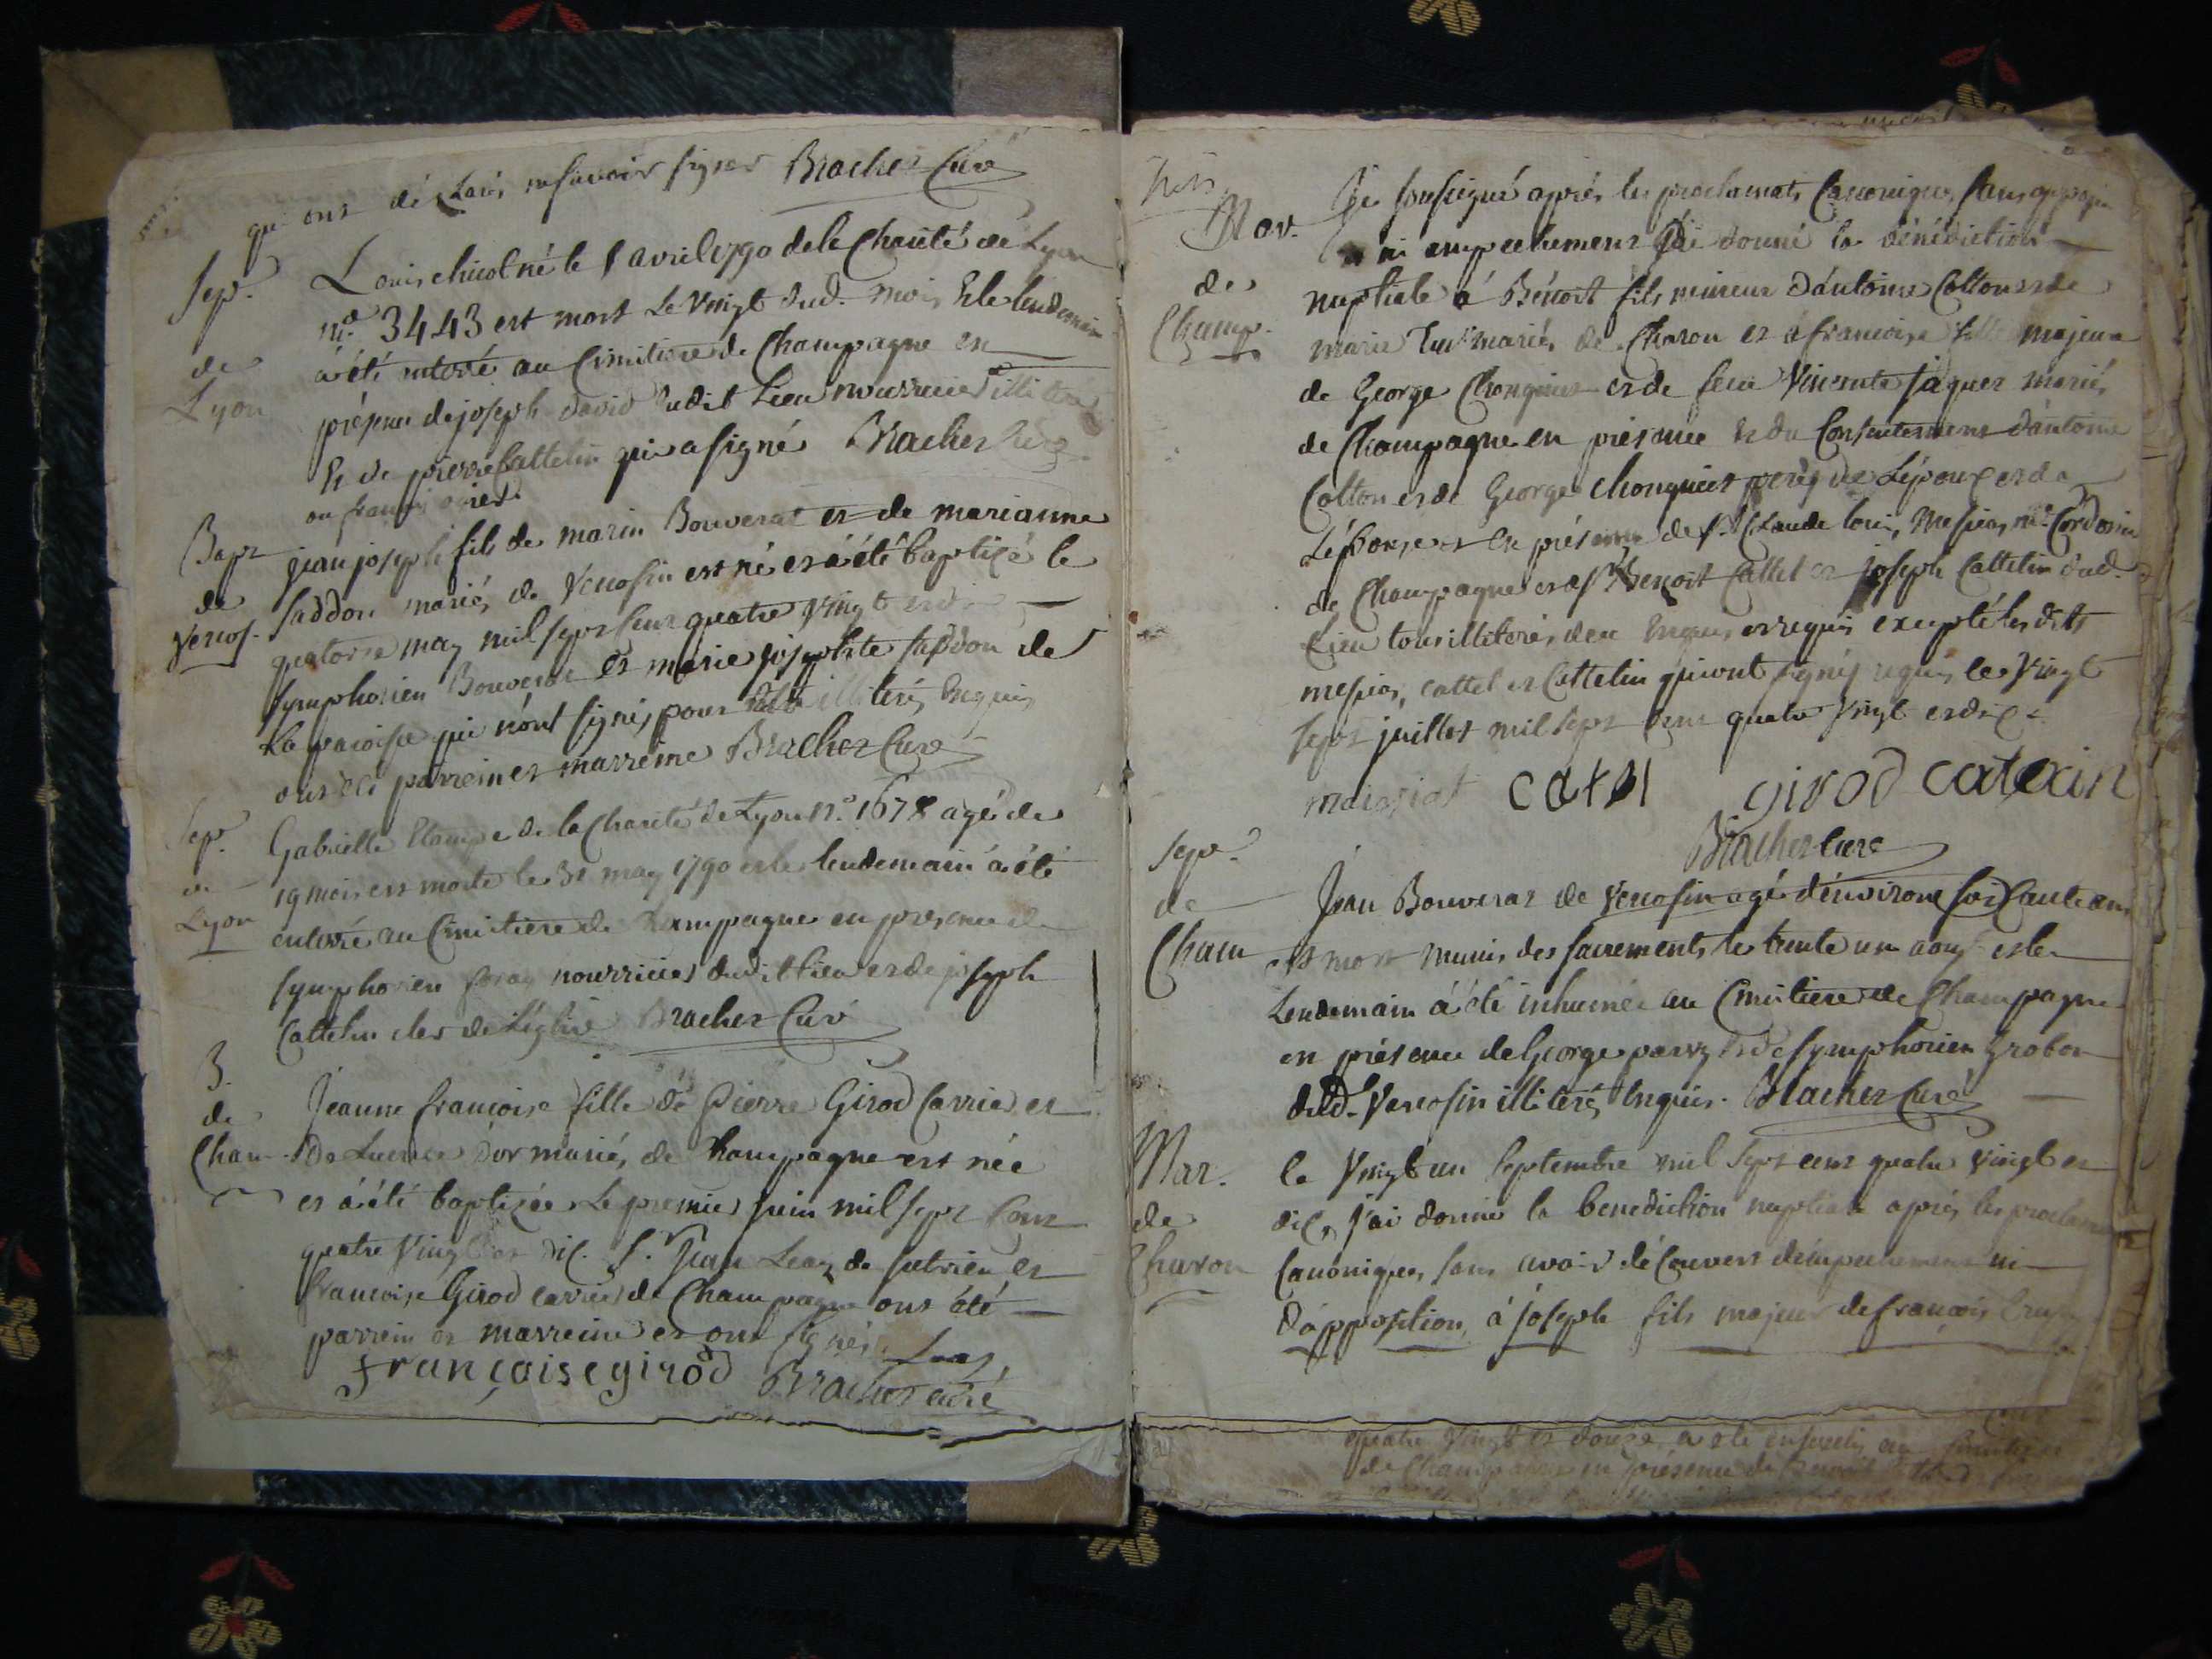 qui ont déclaré ne savoir signer Bracher Curé
Sep.
de
Lyon
Louis chicol né le 8 avril 1790 de la Charité de Lyon
n.o 3443 est mort Le vingt dud. mois & le lendemain
à été enterré au Cimitiere de Champagne en
présence de joseph david dudit Lieu nourricier illiteré
Et de pierre Cattelin qui a signé Bracher Curé
Bapt
de
Verios.
jean joseph fils de marin Bouverat et de marianne
Saddon mariés de Veriosin est né et à été baptizé le
quatorze may mil sept cent quatre vingt et dix
Symphorien Bouverat et marie hippolite Saddon de
La paroisse qui n'ont signé, pour être illiterés Enquis
ont été parrein et marreine Bracher Curé
Sep.
de
Lyon
Gabrielle Etampe de la Charité de Lyon n.o 1678 agé de
19 mois est morte le 31 may 1790 et le lendemain à été
enterré au Cimitiere de Champagne en presence de
Symphorien nourricier dudit lieu et de joseph
Cattelin clerc de L'église Bracher Curé
B.
de
Cham.
Jeanne françoise fille de Pierre Girod Carrier et
De Lucrece d'or mariés de Champagne est née
et à été baptizée Le premier juin mil sept Cent
quatre Vingt et dix. S.r Jean Leaz de Sutrieu et
françoise Girod carrier de Champagne ont été
parrein et marreine et ont signés Leaz
françaisegirod Bracher curé
Mar.
de
Champ.
Je soussigné après les proclamats Canoniques sans opposition
ni empechement j'ai donné la bénédiction
nuptiale à Bénoit fils mineur d'antoine Cotton et de
marie mariés de Charon et à françoise fille majeure
de George Chongnier et de feue Vincente jaquer mariés
de Champagne en présence Et du Consentement d'antoine
Cotton et de George Chongnier peres de L'époux et de
L'épouse et en présence de S.r Claude louis messias m.e Cordonier
de Champagne et de S.r Benoit Cattel et joseph Cattelin dud.
Lieu tous illiterés de ce Enquis et requis excepté lesdits
messias, cattel et Cattelin qui ont signés requis le Vingt
sept juillet mil sept Cent quatre Vingt et dix
catel girod catexin
Bracher curé
Sep.
de
Cham
Jean Bouverat de Veriosin agé d'environt soixante ans
est mort munis des sacrements le trente un aoust et le
Lendemain à été inhumée au Cimitiere de Champagne
en présence de George parvy et de Symphorien grobon
dud. Veriosin illiterés Enquis. Bracher Curé
Mar.
de
Charon
le Vingt un Septembre mil Sept cent quatre Vingt et
dix, j'ai donné la benediction nuptiale après les proclamats
Canoniques, sans avoir découvert d'empechement ni
d'opposition, à joseph fils majeur de françois
quatre Vingt et douze a été enseveli au Cimitiere
de Champagne en présence de Benoit